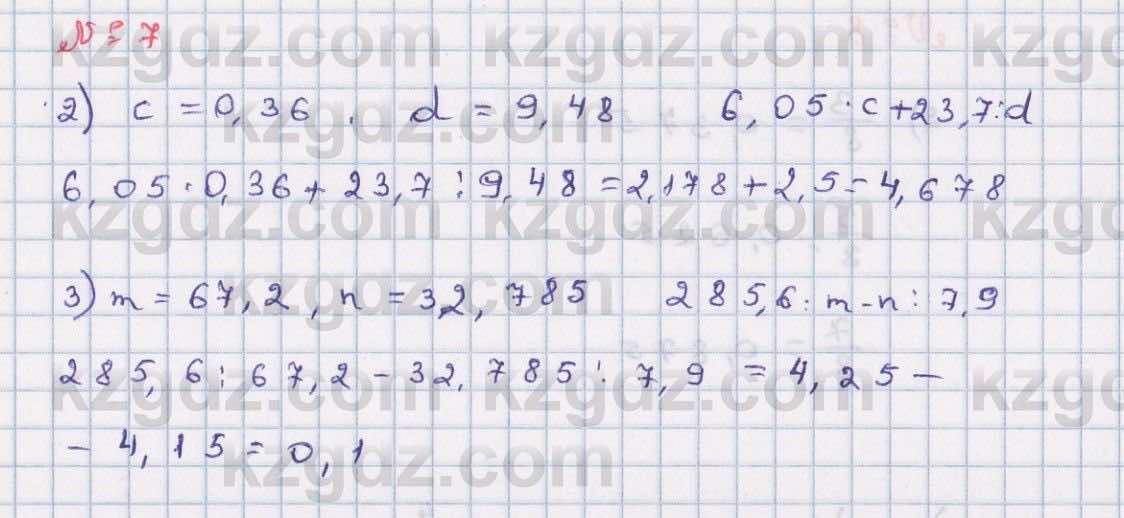 № 7
2) c = 0,36 . d = 9,48 6,05·c+23,7:d
6,05·0,36+23,7:9,48=2,178+2,5=4,678
3) m = 67,2, n = 32,785 285,6:m-n:7,9
285,6:67,2-32,785:7,9 = 4,25-
- 4,15 = 0,1
kzgdz.com